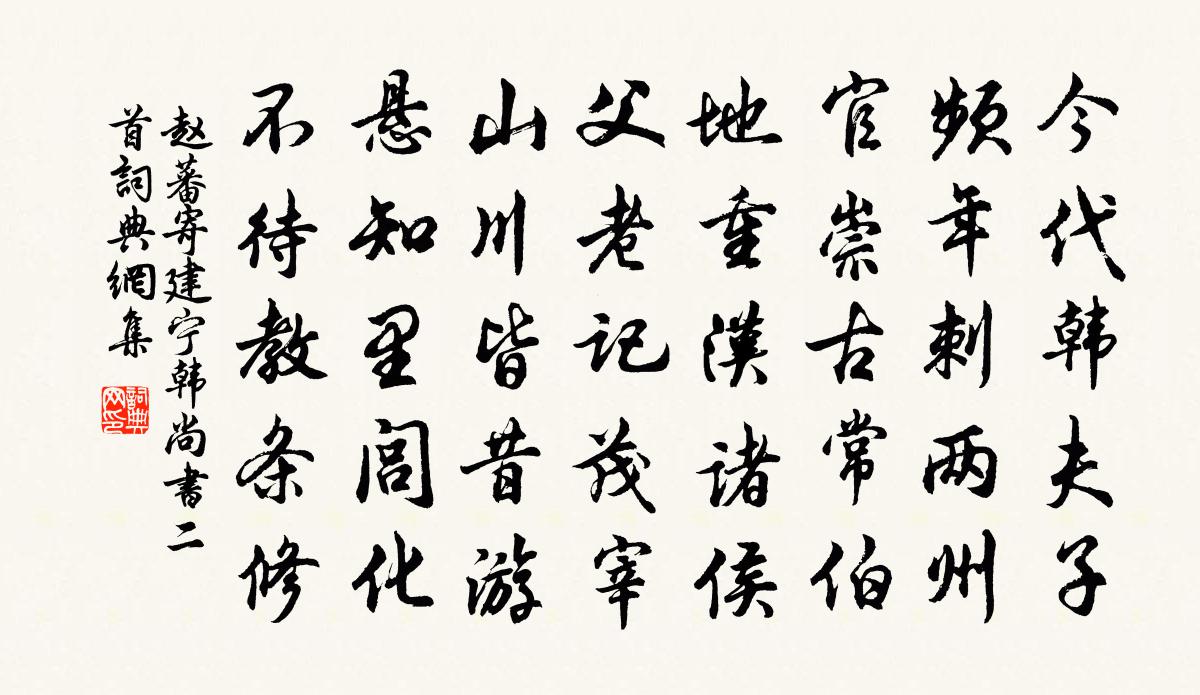 今代韩夫子
频年刺两州
官崇古常伯
地重漢诸侯
父老记茂宰
山川皆昔游
悬知里闾化
不待教条修
赵蕃寄建宁韩尚書二
首詞典網集
詞典
网印